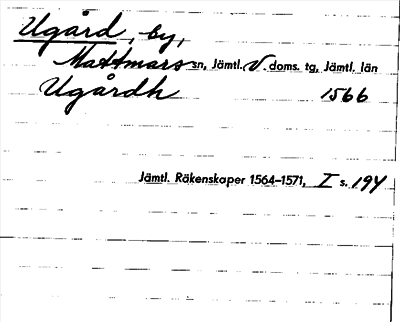 Ugård, by,
Mattmars sn, Jämtl. V. doms. tg, Jämtl. län
Ugårdh 1566
Jämtl. Räkenskaper 1564-1571, I s. 194